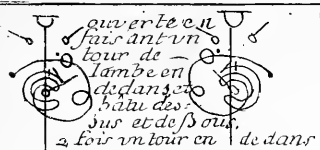 ouverte en
faisant vn
tour de
Iambe en
dedans et
bâtu des-
sus et deßous.
2 fois vn tour en dedans